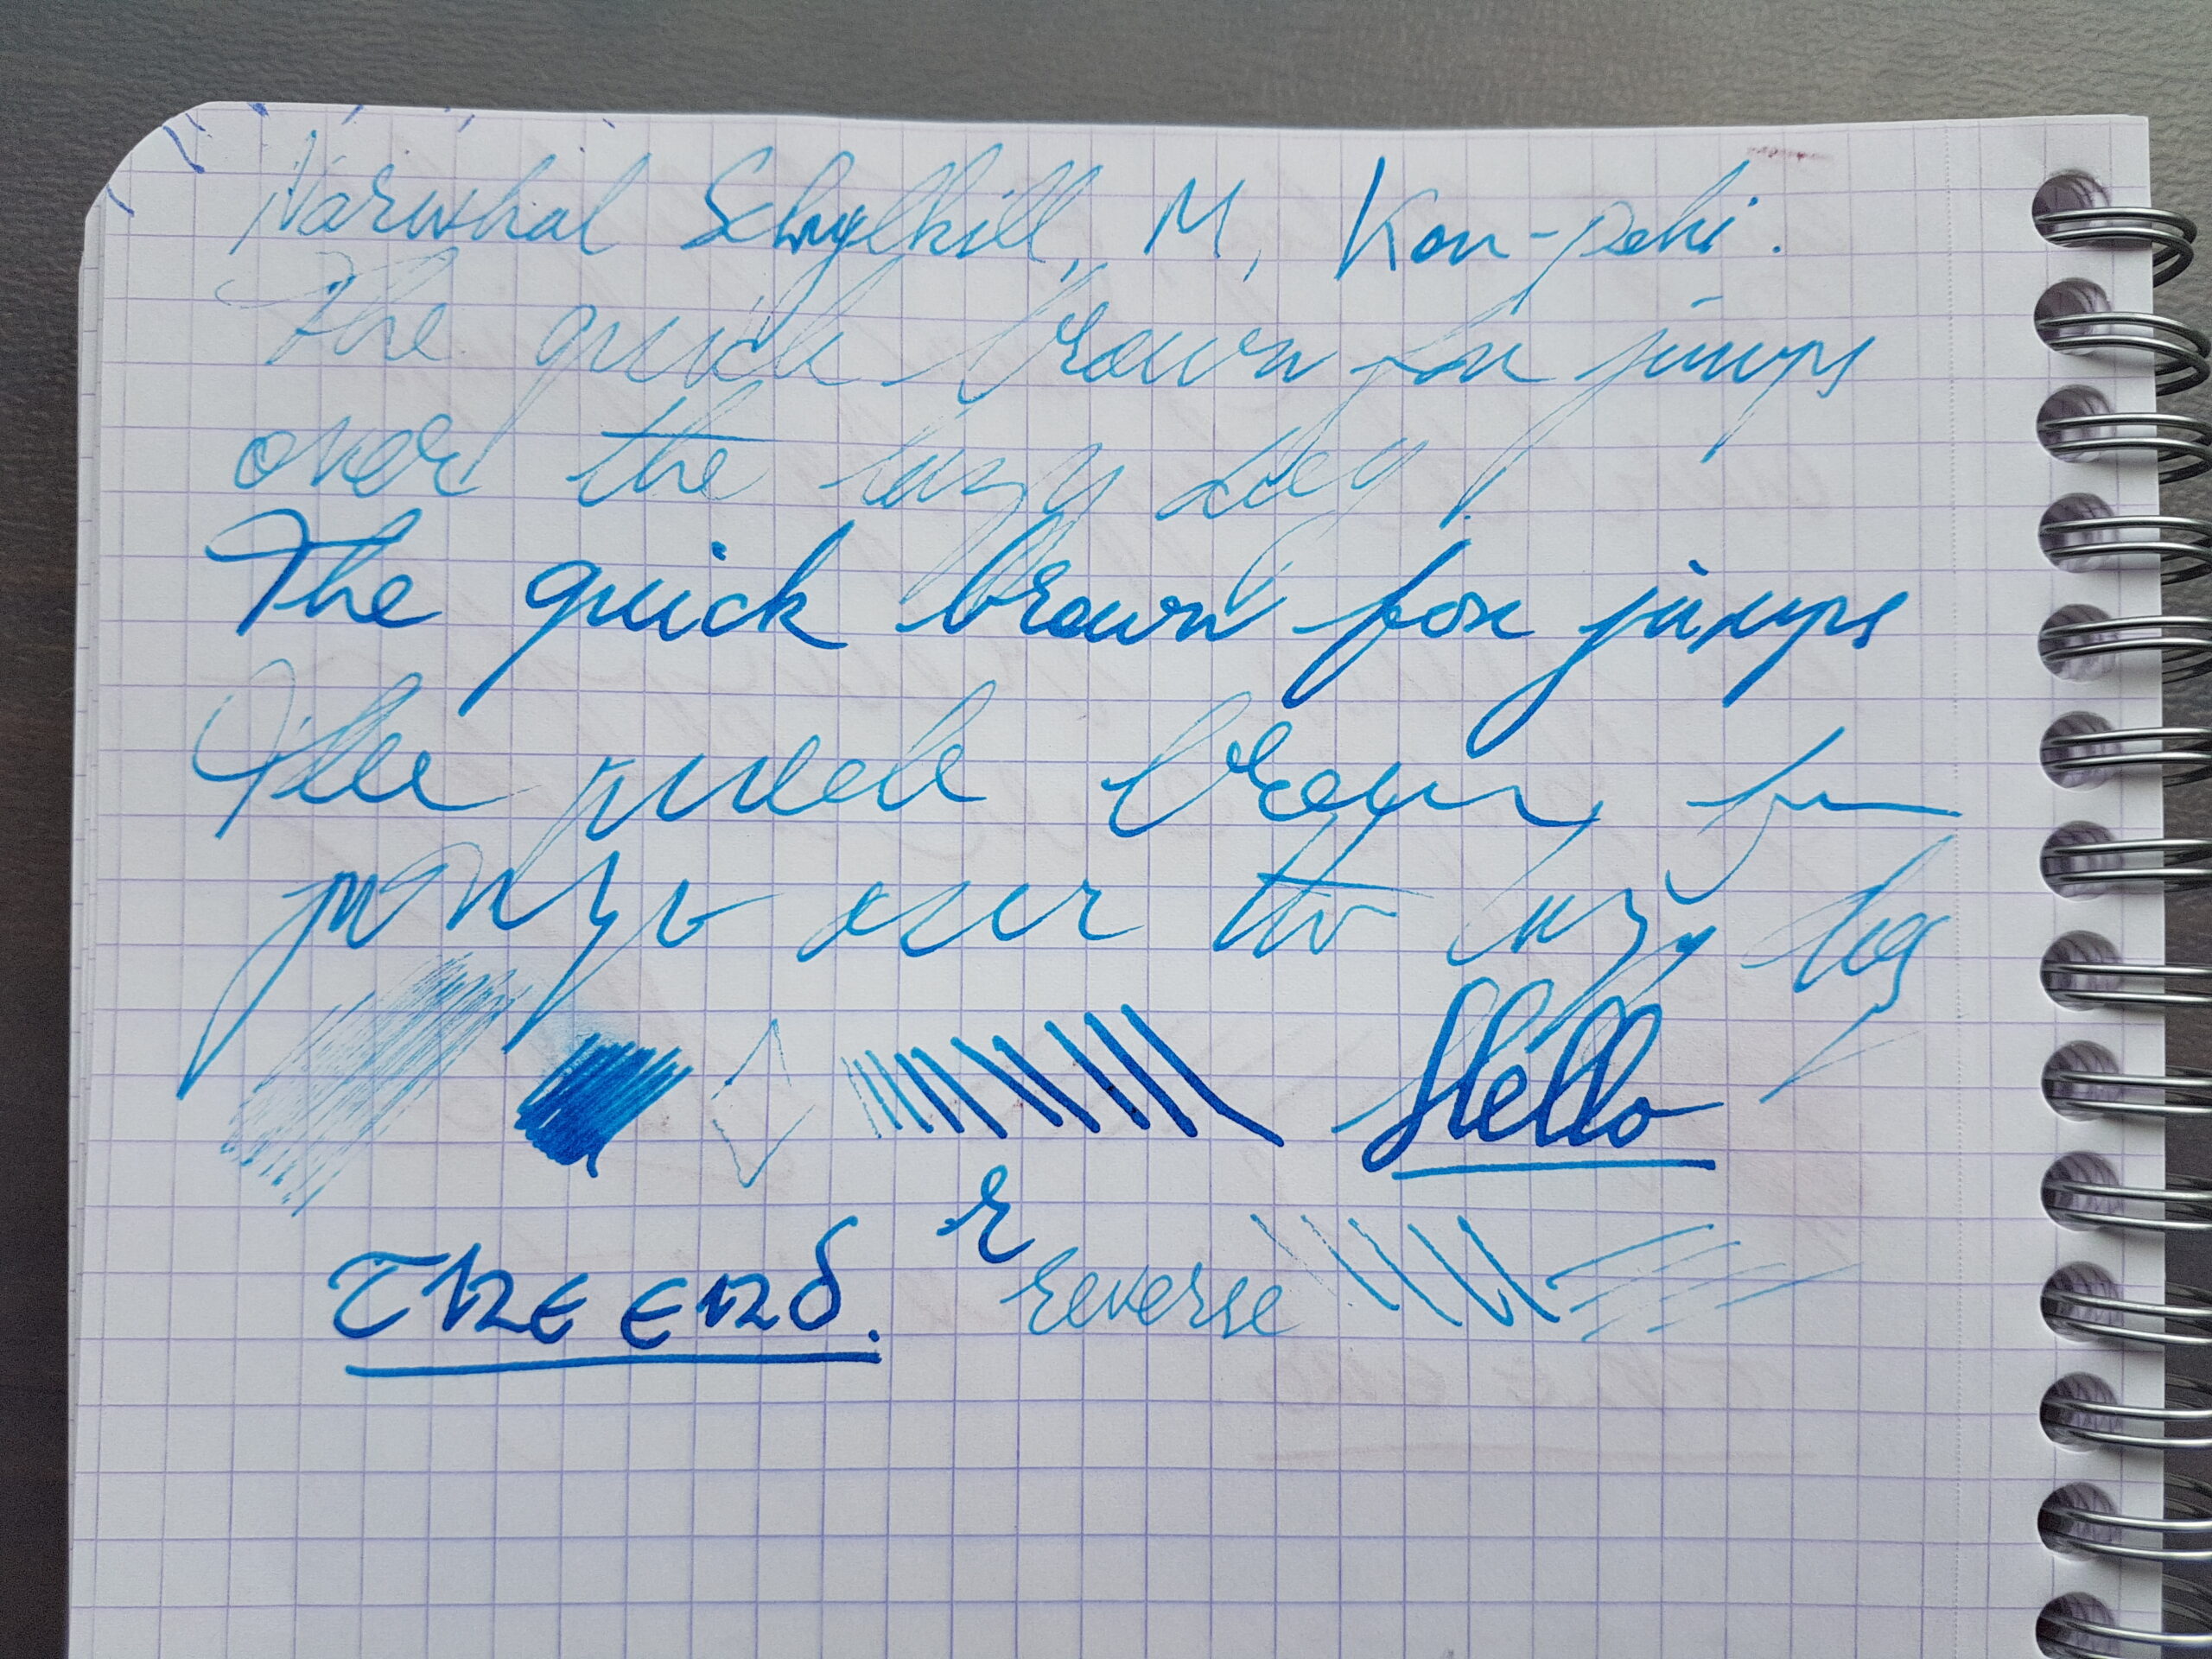 Narwhal Schuylkill, M, Kon-peki.
The quick brown fox jumps
over the lazy dog
The quick brown fox jumps
The quick brown fox
jumps over the lazy dog
Hello
The end. r reverse